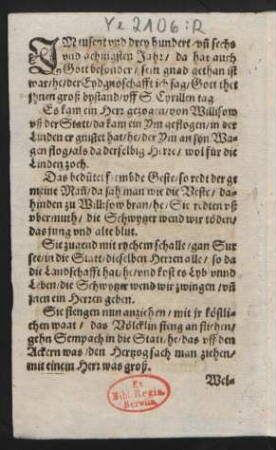 Ye 2106:R
IM tusent vnd drey hundert/ vñ sechs
vnd achtzigsten Jahr/ da hat auch
Gott besonder/ sein gnad gethan ist
war/he/der Eydgnoschafft ich sag/Gott thet
jhnen groß bystand/vff S. Cyrillen tag.
Es kam ein Herr gezogen/von Willisow
vß der Statt/da kam ein Ym geflogen/in der
Linden er gnistet hat/he/der Ym an syn Wa-
gen flog/als da derselbig Herre/ wol für die
Linden zoch.
Das bedütet frembde Geste/so redt der ge
meine Mañ/da sah man wie die Veste/ da-
hinden zu Willisow bran/he/ Sie redten vß
vbermuth/ die Schwyger wend wir töden/
das jung vnd alte blut.
Sie zugend mit rychem schalle/gan Sur
see/in die Statt/dieselben Herren alle/ so da
die Landschafft hat/he/vnd kost es Lyb vnnd
Leben/die Schwyger wend wir zwingen/vñ
jnen ein Herren geben.
Sie fiengen nun anziehen/ mit jr köstli-
chen waat/ das Völcklin fieng an fliehen/
gehn Sempach in die Statt/he/das vff den
Ackern was/den Hertzog sach man ziehen/
mit einem Heer was groß.
Wel-
Ex
Bibl. Regia
Berolin.